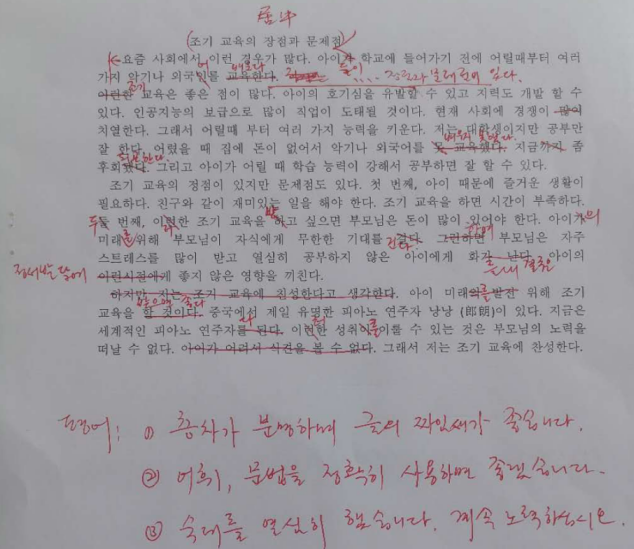 居中
(조기 교육의 장점과 문제점)
요즘 사회에서 이런 경우가 많다. 아이가 학교에 들어가기 전에 어릴때부터 여러
가지 악기나 외국어를 교육한다. 배운다
이러한 조기 교육은 좋은 점이 많다. 아이의 호기심을 유발할 수 있고 지력도 개발 할 수
있다. 인공지능의 보급으로 많이 직업이 도태될 것이다. 현재 사회에 경쟁이 많이
치열한다. 그래서 어릴때 부터 여러 가지 능력을 키운다. 저는 대학생이지만 공부만
잘 한다. 어렸을 때 집에 돈이 없어서 악기나 외국어를 못 교육했다. 지금까지 좀
후회했다. 그리고 아이가 어릴 때 학습 능력이 강해서 공부하면 잘 할 수 있다.
조기 교육의 정점이 있지만 문제점도 있다. 첫 번째, 아이 때문에 즐거운 생활이
필요하다. 친구와 같이 재미있는 일을 해야 한다. 조기 교육을 하면 시간이 부족하다.
두 둘 번째, 이런한 조기 교육을 하고 싶으면 부모님은 돈이 많이 있어야 한다. 아이가 의
미래를 위해 부모님이 자식에게 무한한 기대를 걸다. 그런하면 부모님은 자주
스트레스를 많이 받고 열심히 공부하지 않은 아이에게 화가 난다. 아이의
어린시절에게 좋지 않은 영향을 끼친다.
하지만 저는 조기 교육에 찬성한다고 생각한다. 아이 미래의 발전 위해 조기
교육을 할 것이다. 중국에선 제일 유명한 피아노 연주자 낭낭 (郎朗)이 있다. 지금은
세계적인 피아노 연주자를 된다. 이런한 성취이 이룰 수 있는 것은 부모님의 노력을
떠날 수 없다. 아이가 어려서 식견을 볼 수 없다. 그래서 저는 조기 교육에 찬성한다.
평어: ① 층차가 분명하며 글의 짜임새가 좋습니다.
② 어휘, 문법을 정확히 사용하면 좋겠습니다.
③ 숙제를 열심히 했습니다. 계속 노력하십시오.